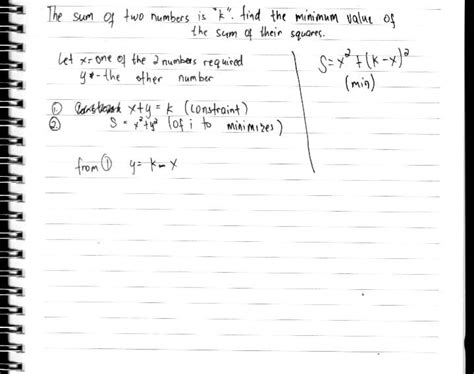 The sum of two numbers is "k". find the minimum value of
the sum of their squares.
Let x = one of the 2 numbers required
y = the other number
① x+y = k (constraint)
② S = x²+y² (of i to minimizes)
from ① y = k - x
S = x² + (k-x)²
(min)